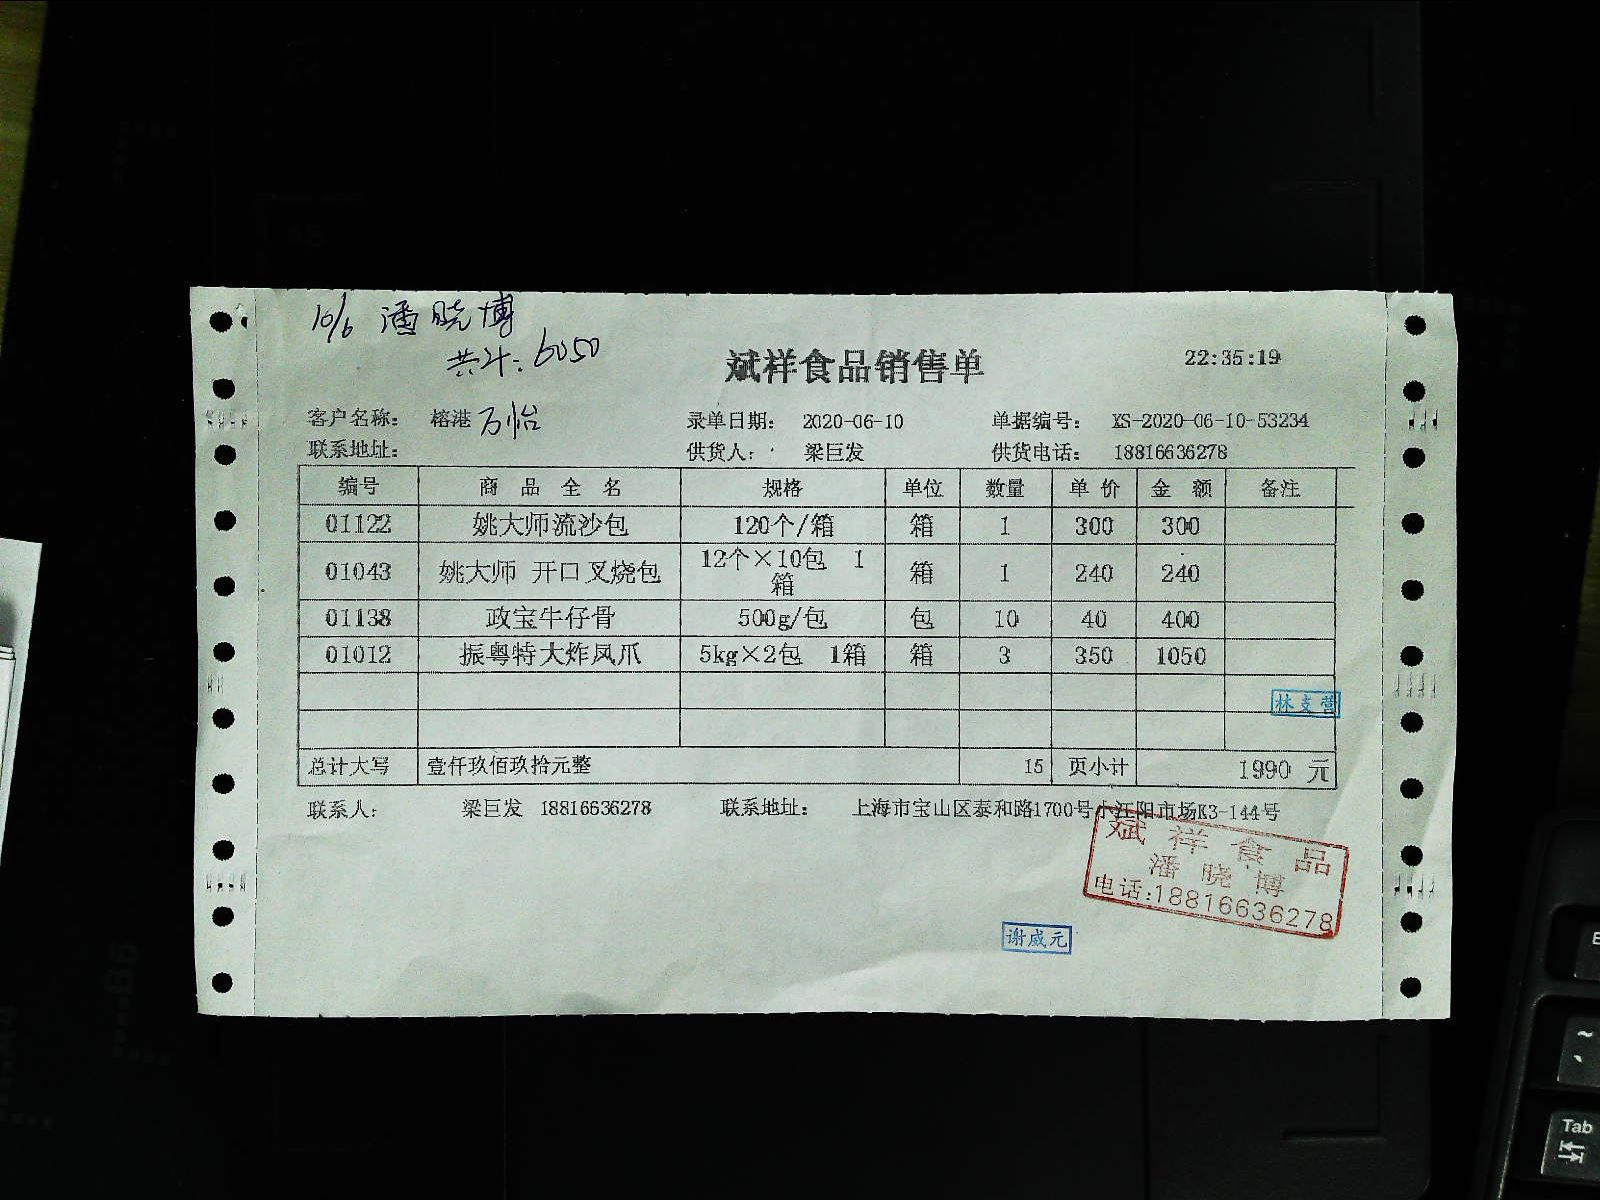 10/6 潘晓博
共计: 6050
斌祥食品销售单 22:35:19
客户名称: 榕港 万怡 录单日期: 2020-06-10 单据编号: XS-2020-06-10-53234
联系地址: 供货人: 梁巨发 供货电话: 18816636278
编号 商品全名 规格 单位 数量 单价 金额 备注
01122 姚大师流沙包 120个/箱 箱 1 300 300
01043 姚大师 开口叉烧包 12个×10包 1箱 箱 1 240 240
01138 政宝牛仔骨 500g/包 包 10 40 400
01012 振粤特大炸凤爪 5kg×2包 1箱 箱 3 350 1050
林支营
总计大写 壹仟玖佰玖拾元整 15 页小计 1990 元
联系人: 梁巨发 18816636278 联系地址: 上海市宝山区泰和路1700号小江阳市场K3-144号
斌祥食品
潘晓博
电话:18816636278
谢威元
Tab